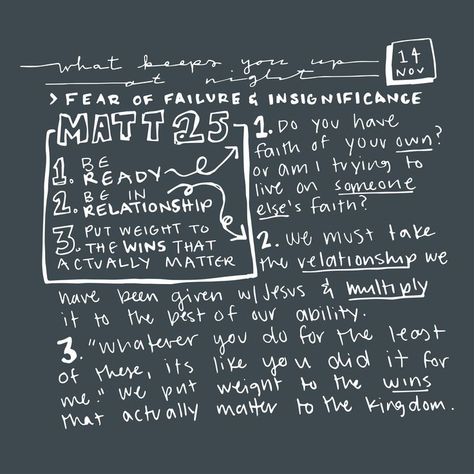 what keeps you up
at night
14
NOV
> FEAR OF FAILURE & INSIGNIFICANCE
MATT 25
1. BE
READY
2. BE IN
RELATIONSHIP
3. PUT WEIGHT TO
THE WINS THAT
ACTUALLY MATTER
1. Do you have
faith of your own?
or am I trying to
live on someone
else's faith?
2. we must take
the relationship we
have been given w/Jesus & multiply
it to the best of our ability.
3. "whatever you do for the least
of these, its like you did it for
me." we put weight to the wins
that actually matter to the kingdom.